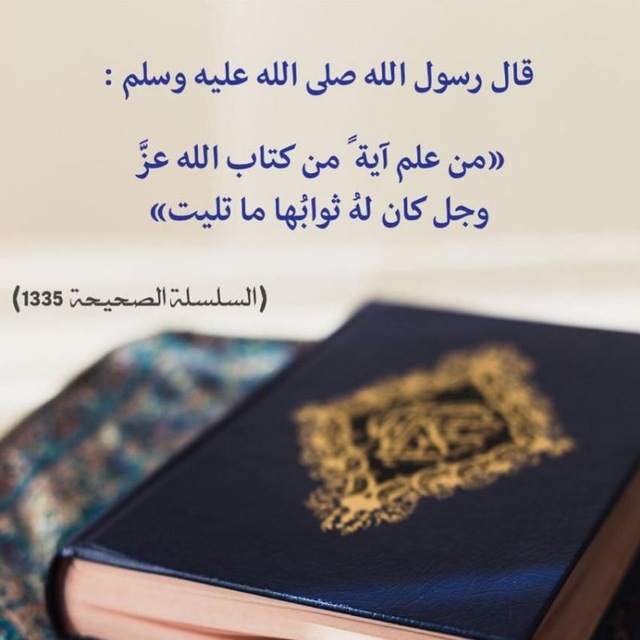 قال رسول الله صلى الله عليه وسلم :
«من علم آية ً من كتاب الله عزَّ
وجل كان لهُ ثوابُها ما تليت»
(السلسلة الصحيحة 1335)